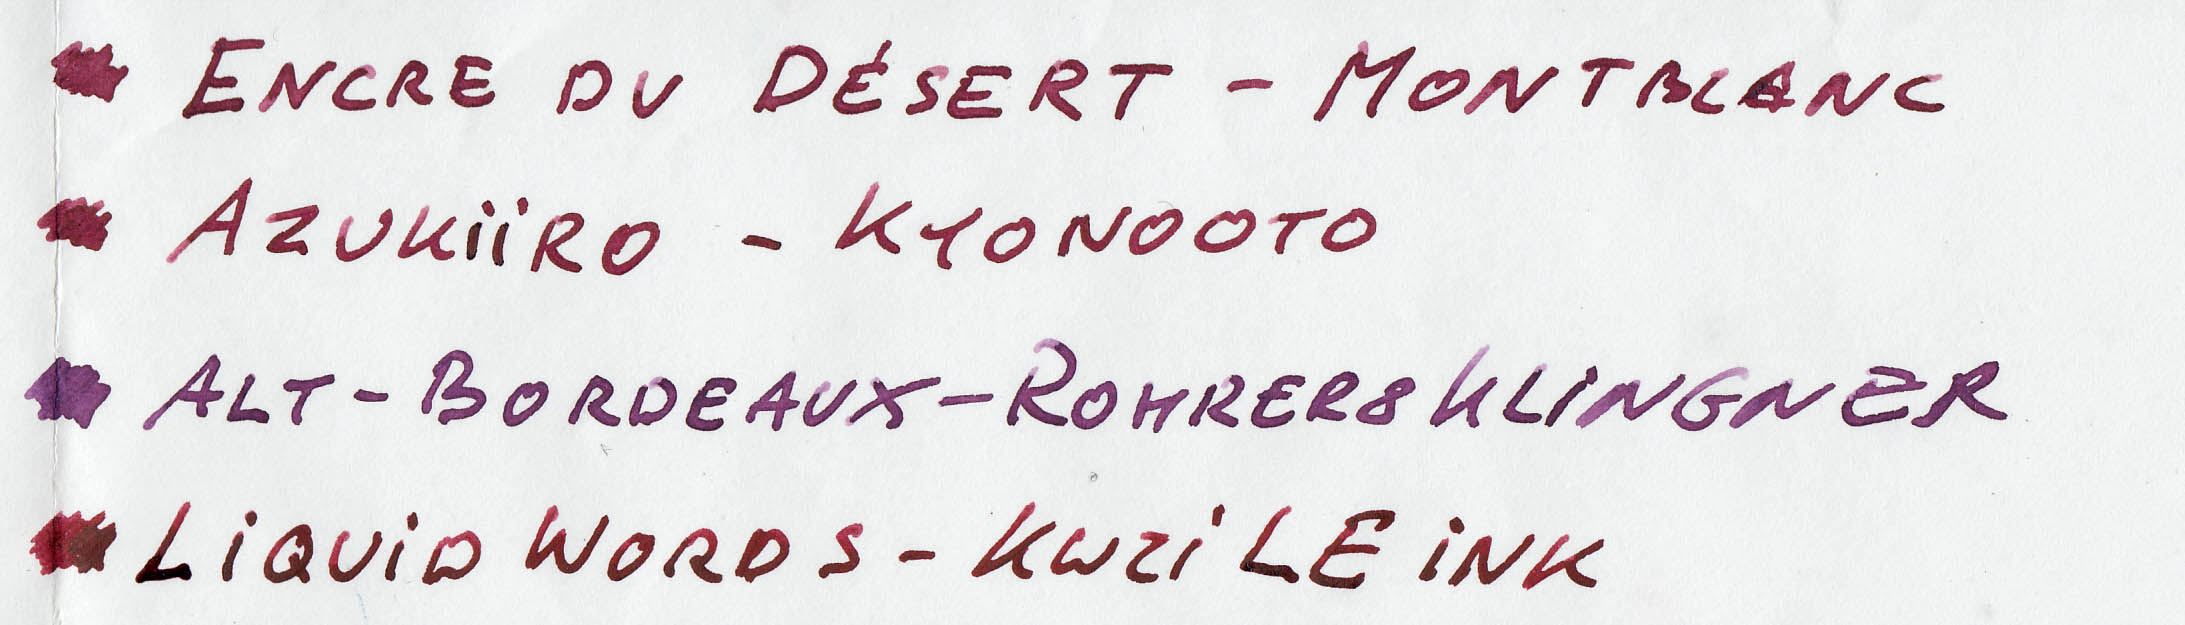 ENCRE DU DÉSERT - MONTBLANC
AZUKIIRO - KYONOOTO
ALT-BORDEAUX-ROHRER&KLINGNER
LIQUID WORDS - KWZI LE INK